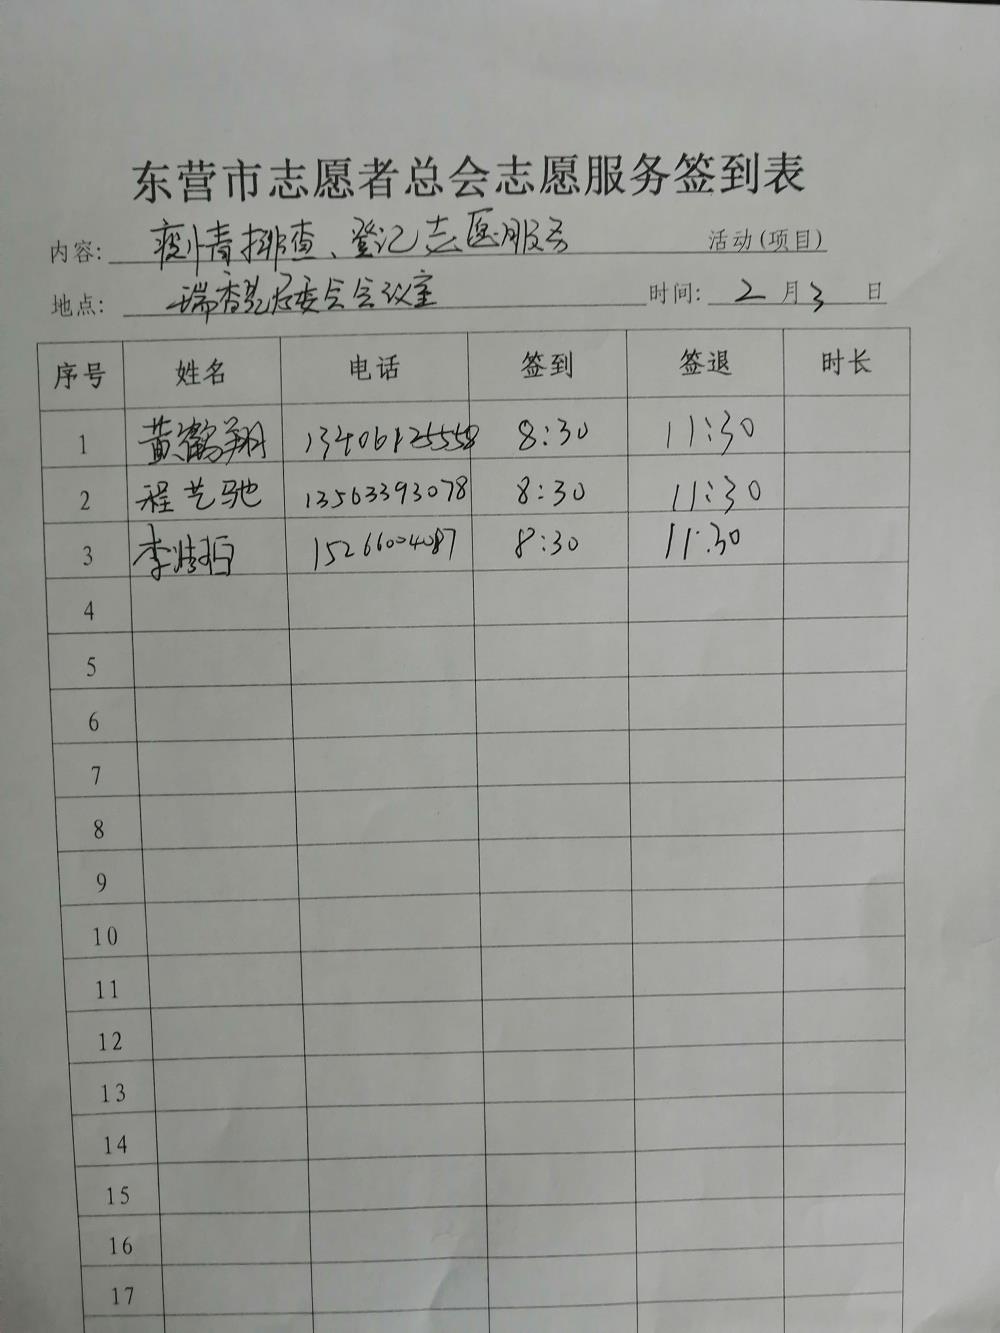 东营市志愿者总会志愿服务签到表
内容: 疫情排查、登记志愿服务 活动(项目)
地点: 瑞香苑居委会会议室 时间: 2 月 3 日
序号 姓名 电话 签到 签退 时长
1 黄鹤翔 13406125558 8:30 11:30
2 程艺驰 13563393078 8:30 11:30
3 李 15266004087 8:30 11:30
4
5
6
7
8
9
10
11
12
13
14
15
16
17